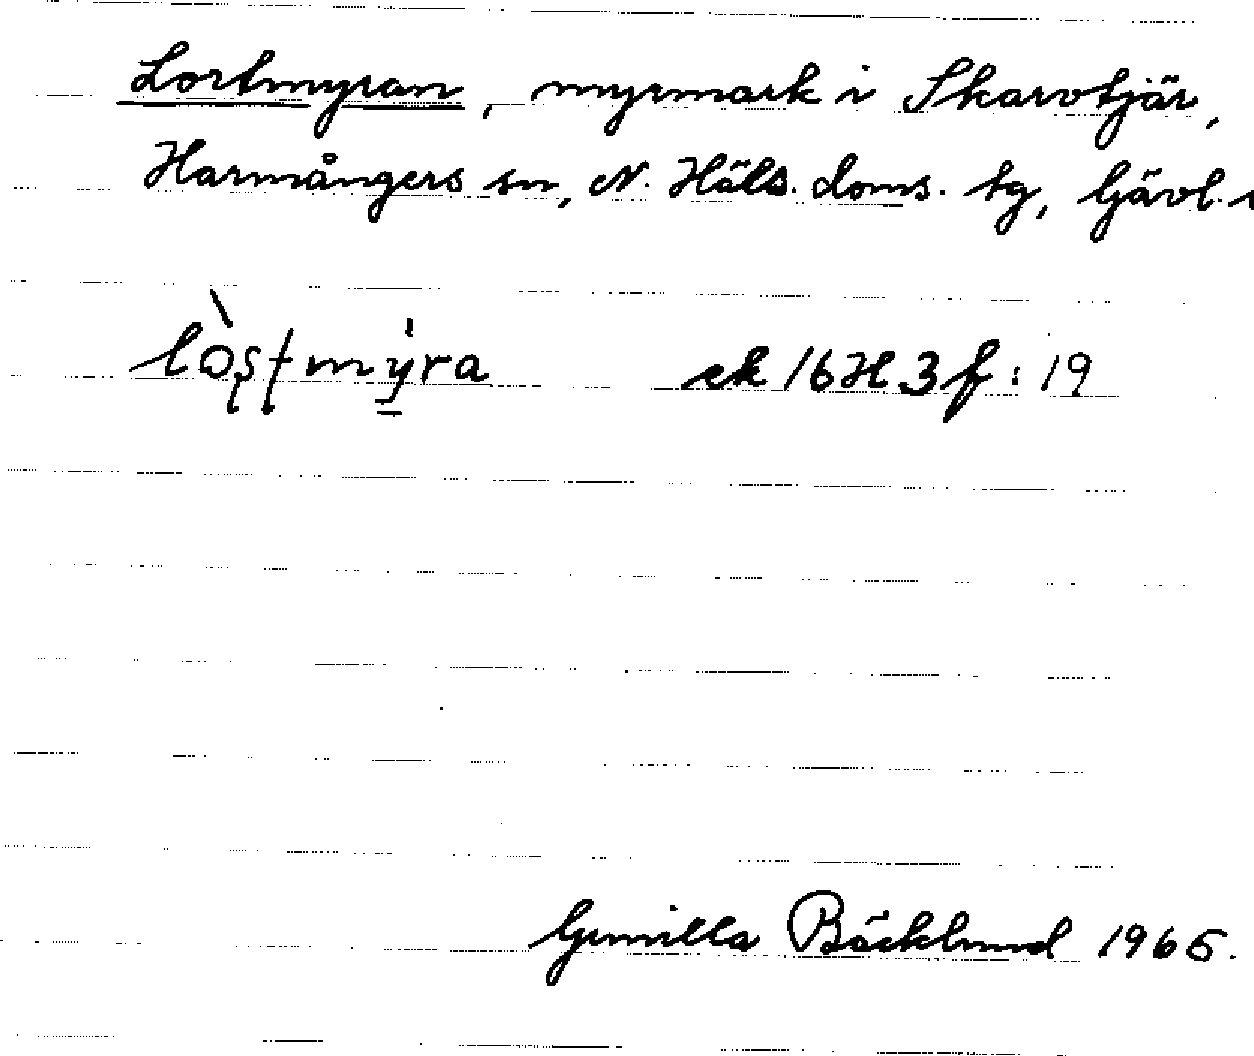 Lortmyran, myrmark i Skarvtjär,
Harmångers sn, N. Häls. doms. tg, Gävl.
lòştmy̠ra ek 16H3f:19
Gunilla Bäcklund 1965.